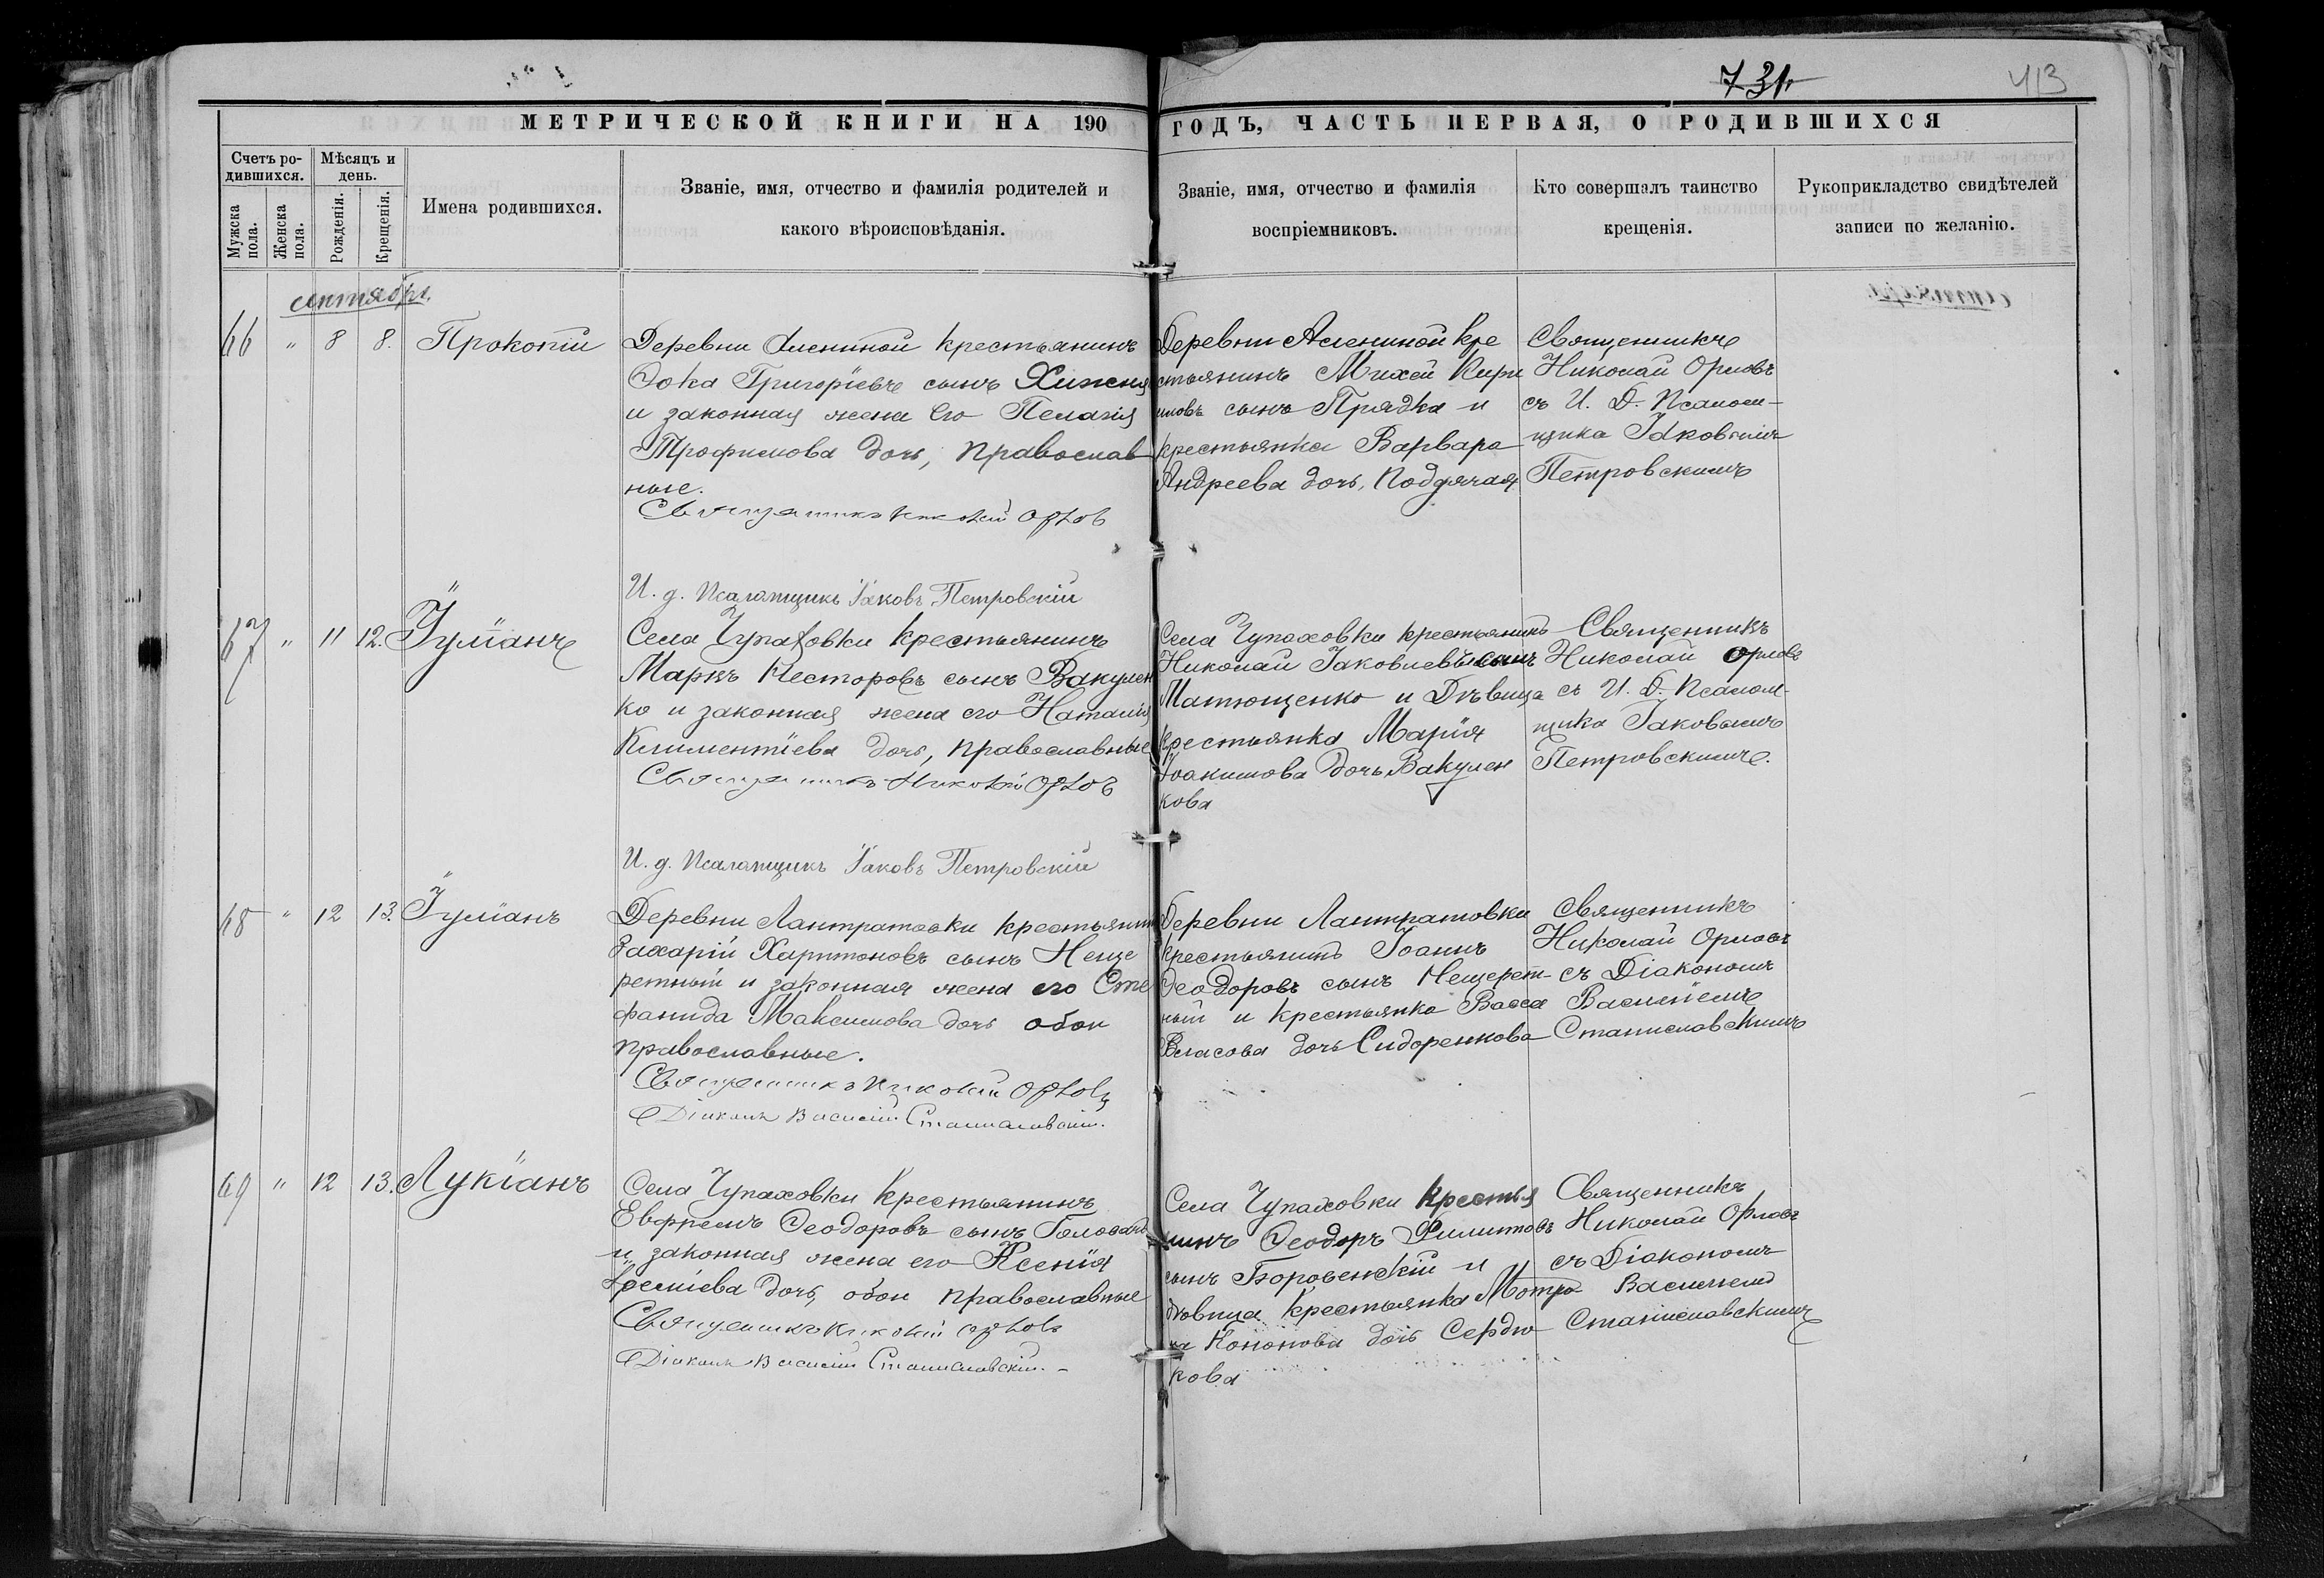 731
413
МЕТРИЧЕСКОЙ КНИГИ НА 190 ГОДЪ, ЧАСТЬ ПЕРВАЯ, О РОДИВШИХСЯ
Счетъ ро-
дившихся.
Мужска
пола.
Женска
пола.
Мѣсяцъ и
день.
Рожденія.
Крещенія.
Имена родившихся.
Званіе, имя, отчество и фамилія родителей и
какого вѣроисповѣданія.
Званіе, имя, отчество и фамилія
воспріемниковъ.
Кто совершалъ таинство
крещенія.
Рукоприкладство свидѣтелей
записи по желанію.
сентябрь.
66 " 8 8. Прокопій
Деревни крестьянинъ
Фока Григоріевъ сынъ Хижня
и законная жена его Пелагія
Трофимова дочь, православ
ные.
Священникъ Николай Орловъ
И. д. Псаломщикъ Іаковъ Петровскій
Деревни Асениной кре
стьянинъ Михей Кири
ловъ сынъ Прядка и
крестьянка Варвара
Андреева дочь, Поддячая
Священникъ
Николай Орловъ
съ И. д. Псалом-
щика Іаковымъ
Петровскимъ
67 " 11 12. Іуліанъ
Села Чупаховки крестьянинъ
Маркъ Несторовъ сынъ Вакулен
ко и законная жена его Наталія
Климентіева дочь, православные
Священникъ Николай Орловъ
И. д. Псаломщикъ Іаковъ Петровскій
Села Чупаховки крестьянинъ
Николай Іаковлевъ сынъ
Матющенко и Дѣвица
крестьянка Марія
Іоакимова дочь Вакулен
кова
Священникъ
Николай Орловъ
съ И. д. Псалом-
щика Іаковымъ
Петровскимъ.
68 " 12 13. Іуліанъ
Деревни Лантратовки крестьянинъ
Захарій Харитоновъ сынъ Неще
ретный и законная жена его Сте
фанида Максимова дочь обои
православные.
Священникъ Николай Орловъ
Діаконъ Василій Станиславскій.
Деревни Лантратовки
крестьянинъ Іоаннъ
Ѳеодоровъ сынъ Нещерет-
ный и крестьянка Васса
Власова дочь Сидоренкова
Священникъ
Николай Орловъ
съ Діакономъ
Василіемъ
Станиславскимъ
69 " 12 13. Лукіанъ
Села Чупаховки крестьянинъ
Евфремъ Ѳеодоровъ сынъ
и законная жена его Ксенія
дочь, обои православные
Священникъ Николай Орловъ
Діаконъ Василій Станиславскій. -
Села Чупаховки крестья
нинъ Ѳеодоръ Филиповъ
сынъ Боровенскій и
дѣвица крестьянка Мотро
на Кононова дочь Сердю
кова
Священникъ
Николай Орловъ
съ Діакономъ
Василіемъ
Станиславскимъ